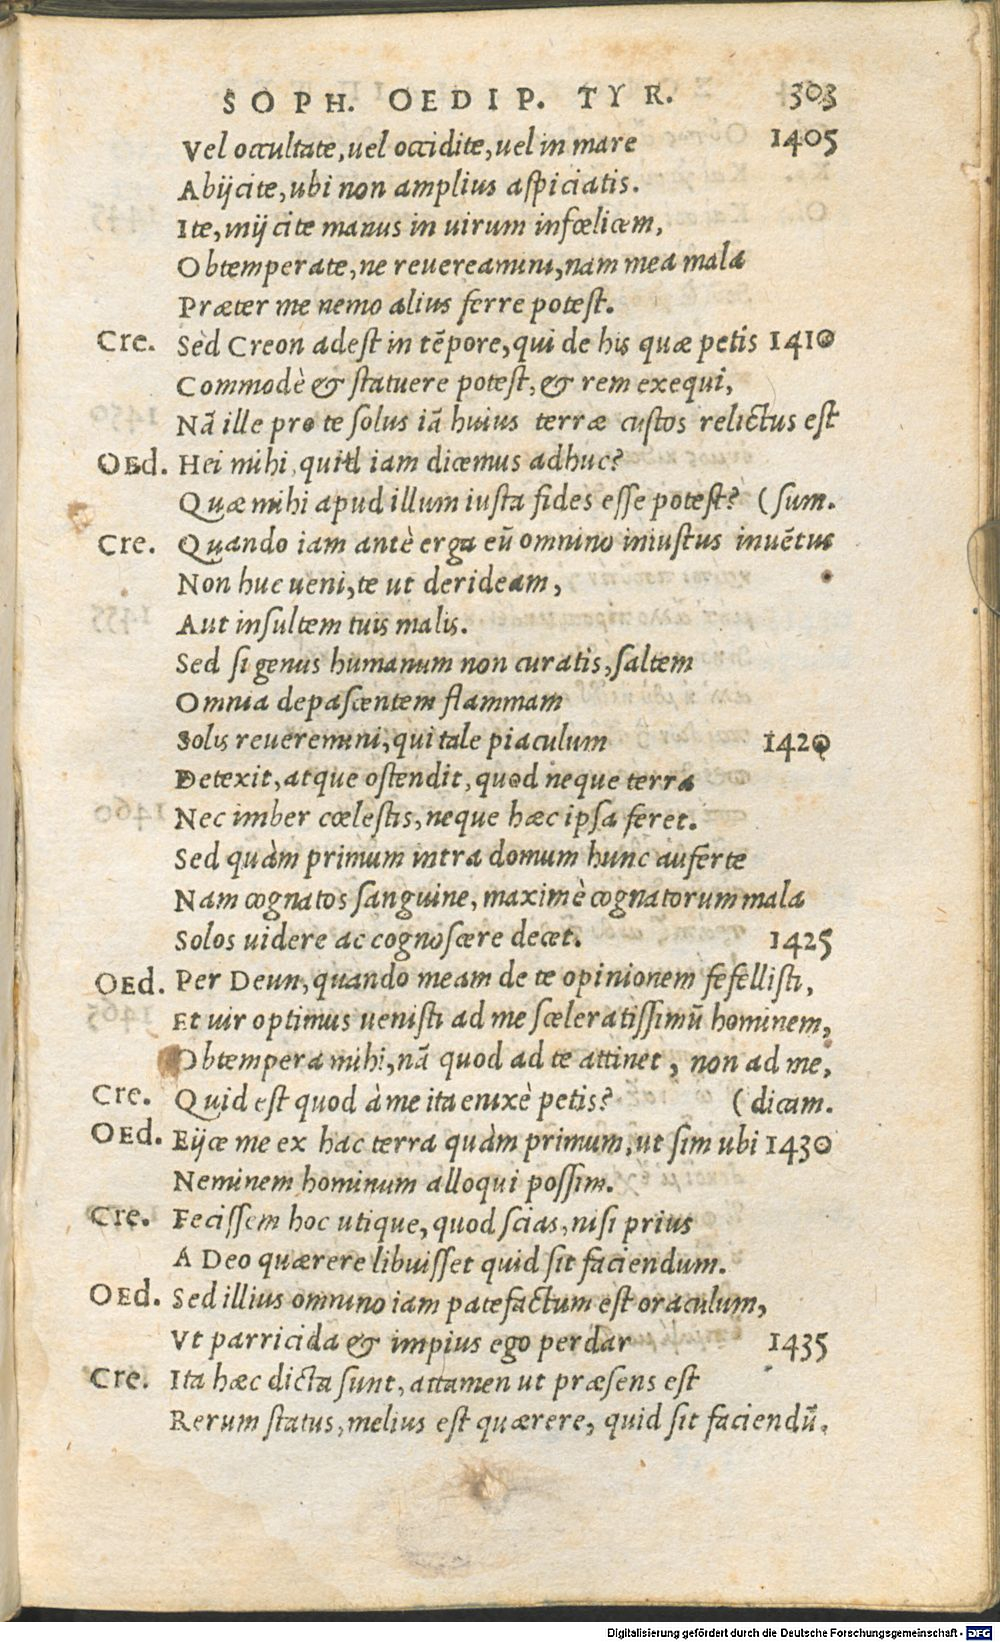 SOPH. OEDIP. TYR. 303
Vel occultate, uel occidite, uel in mare 1405
Abijcite, ubi non amplius aspiciatis.
Ite, inijcite manus in uirum infœlicem,
Obtemperate, ne revereamini, nam mea mala
Præter me nemo alius ferre potest.
Cre. Sèd Creon adest in tẽpore, qui de his quæ petis 1410
Commodè & statuere potest, & rem exequi,
Nã ille pro te solus iã huius terræ custos relictus est
OEd. Hei mihi, quid iam dicemus adhuc?
Quæ mihi apud illum iusta fides esse potest? (sum.
Cre. Quando iam antè erga eũ omnino iniustus inuẽtus
Non huc ueni, te ut derideam,
Aut insultem tuis malis.
Sed si genus humanum non curatis, saltem
Omnia depascentem flammam
Solis reueremini, qui tale piaculum 1420
Detexit, atque ostendit, quod neque terra
Nec imber cœlestis, neque hæc ipsa feret.
Sed quàm primum intra domum hunc auferte
Nam cognatos sanguine, maximè cognatorum mala
Solos uidere ac cognoscere decet. 1425
OEd. Per Deum, quando meam de te opinionem fefellisti,
Et uir optimus uenisti ad me sceleratissimũ hominem,
Obtempera mihi, nã quod ad te attinet, non ad me,
Cre. Quid est quod à me ita enixè petis? (dicam.
OEd. Eijce me ex hac terra quàm primum, ut sim ubi 1430
Neminem hominum alloqui possim.
Cre. Fecissem hoc utique, quod scias, nisi prius
A Deo quærere libuisset quid sit faciendum.
OEd. Sed illius omnino iam patefactum est oraculum,
Vt parricida & impius ego perdar 1435
Cre. Ita hæc dicta sunt, attamen ut præsens est
Rerum status, melius est quærere, quid sit faciendũ.
Digitalisierung gefördert durch die Deutsche Forschungsgemeinschaft - DFG